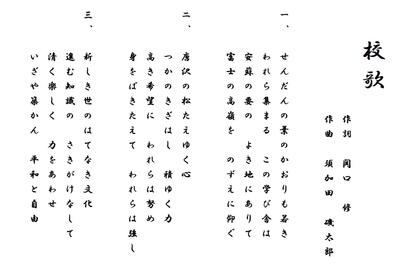 校歌
作詞 関口 修
作曲 須加田 礒太郎
一、
せんだんの葉のかおりも若き
われら集まる この学び舎は
安蘇の要の よき地にありて
富士の高嶺を のずえに仰ぐ
二、
唐沢の松たえゆく心
つかのきざはし 積ゆく力
高き希望に われらは努め
身をばきたえて われらは強し
三、
新しき世のはてなき文化
進む知識の さきがけなして
清く楽しく 力をあわせ
いざや築かん 平和と自由